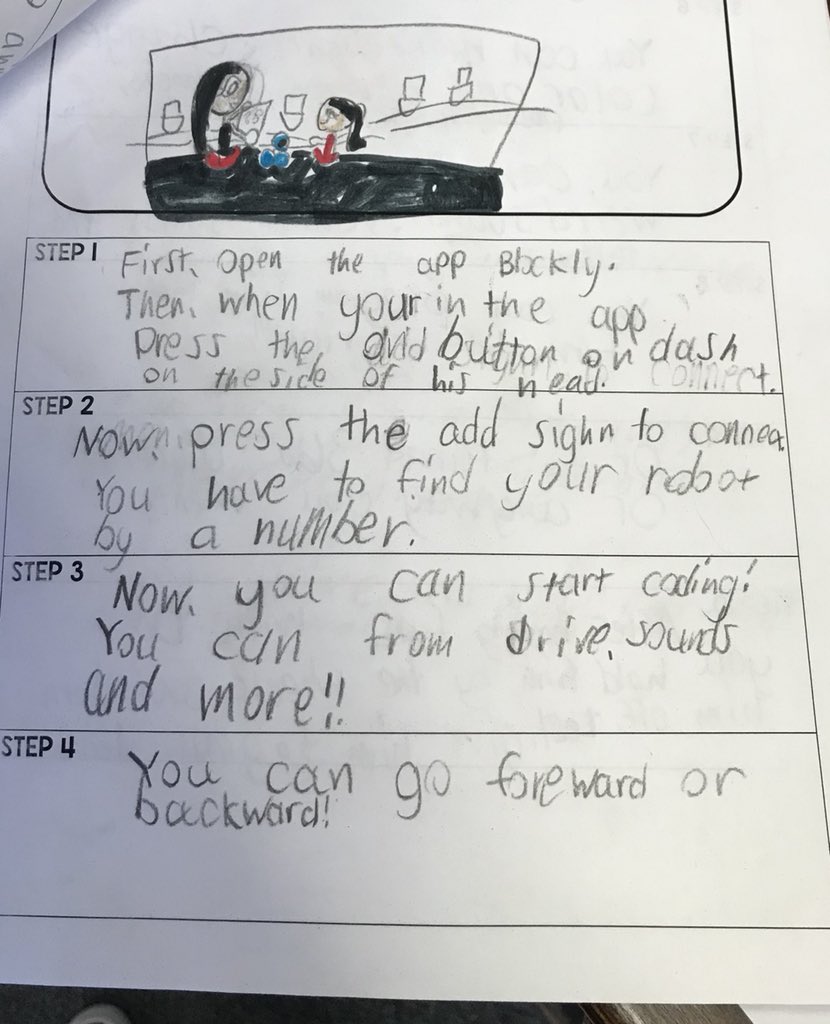 STEP 1
First, Open the app Blockly.
Then, when your in the app
Press the, button on dash
on the side of his head. connect.
STEP 2
Now, press the add sighn to connect
You have to find your robot
by a number.
STEP 3
Now, you can start coding!
You can from drive, sounds
and more!!
STEP 4
You can go foreward or
backward!